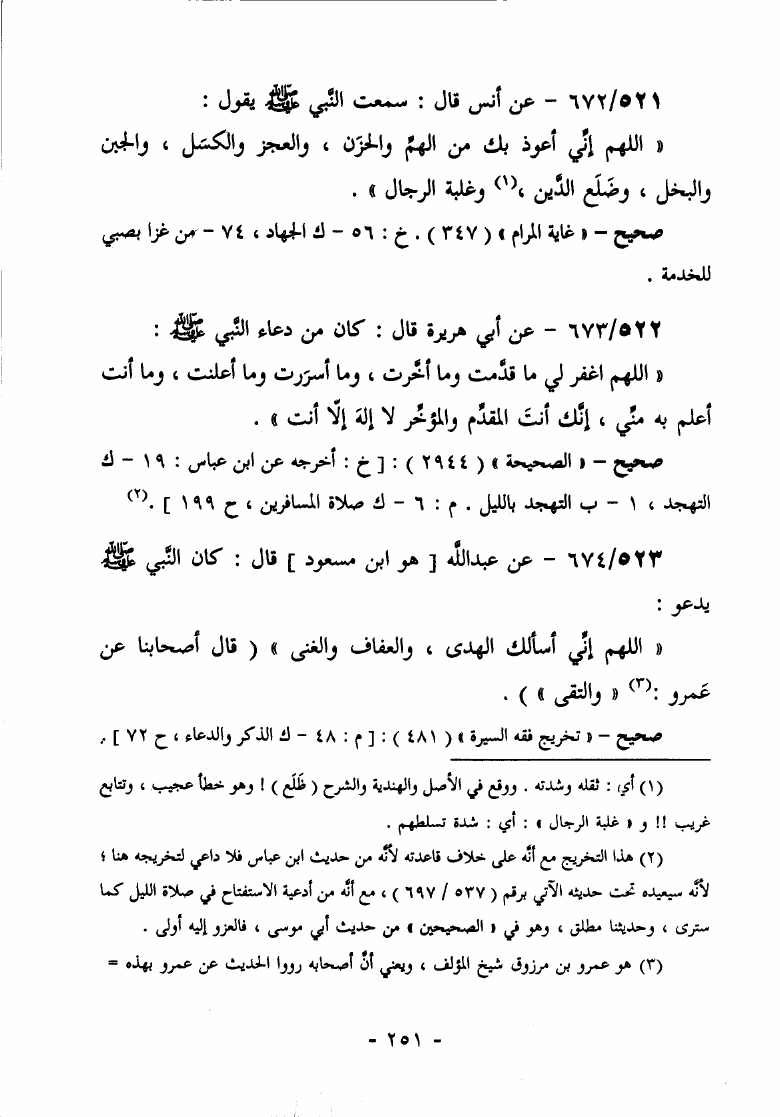 ٦٧٢/٥٢١ - عن أنس قال : سمعت النَّبي ﷺ يقول :
« اللهم إنِّي أعوذ بك من الهمِّ والحزَن ، والعجز والكسَل ، والجبن
والبخل ، وضَلَع الدَّين ،(١) وغلبة الرجال » .
صحيح – « غاية المرام » ( ٣٤٧ ) . خ : ٥٦ - ك الجهاد ، ٧٤ - من غزا بصبي
للخدمة .
٦٧٣/٥٢٢ - عن أبي هريرة قال : كان من دعاء النَّبي ﷺ :
« اللهم اغفر لي ما قدَّمت وما أخَّرت ، وما أسرَرت وما أعلنت ، وما أنت
أعلم به منِّي ، إنَّك أنتَ المقدِّم والمؤخِّر لا إلهَ إلّا أنت » .
صحيح – « الصحيحة » ( ٢٩٤٤ ) : [ خ : أخرجه عن ابن عباس : ١٩ - ك
التهجد ، ١ - ب التهجد بالليل . م : ٦ - ك صلاة المسافرين ، ح ١٩٩ ] .(٢)
٦٧٤/٥٢٣ - عن عبداللَّه [ هو ابن مسعود ] قال : كان النَّبي ﷺ
يدعو :
« اللهم إنِّي أسألك الهدى ، والعفاف والغنى » ( قال أصحابنا عن
عَمرو :(٣) « والتقى » ) .
صحيح – « تخريج فقه السيرة » ( ٤٨١ ) : [ م : ٤٨ - ك الذكر والدعاء ، ح ٧٢ ] .
(١) أي : ثقله وشدته . ووقع في الأصل والهندية والشرح ( ظَلَع ) ! وهو خطأ عجيب ، وتتابع
غريب !! و « غلبة الرجال » : أي : شدة تسلطهم .
(٢) هذا التخريج مع أنَّه على خلاف قاعدته لأنَّه من حديث ابن عباس فلا داعي لتخريجه هنا ؛
لأنَّه سيعيده تحت حديثه الآتي برقم ( ٥٣٧ / ٦٩٧ ) ، مع أنَّه من أدعية الاستفتاح في صلاة الليل كما
سترى ، وحديثنا مطلق ، وهو في « الصحيحين » من حديث أبي موسى ، فالعزو إليه أولى .
(٣) هو عمرو بن مرزوق شيخ المؤلف ، ويعني أنَّ أصحابه رووا الحديث عن عمرو بهذه =
- ٢٥١ -